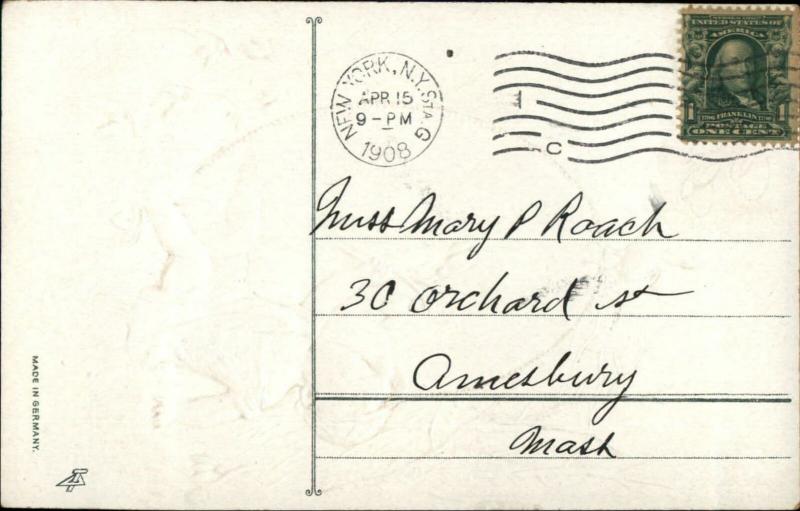 NEW YORK, N.Y. STA. G
APR 15
9-PM
1908
1
C
SERIES 1902
UNITED STATES OF
AMERICA
1 FRANKLIN 1
POSTAGE
ONE CENT
Miss Mary P Roach
30 Orchard st
Amesbury
Mass
MADE IN GERMANY.